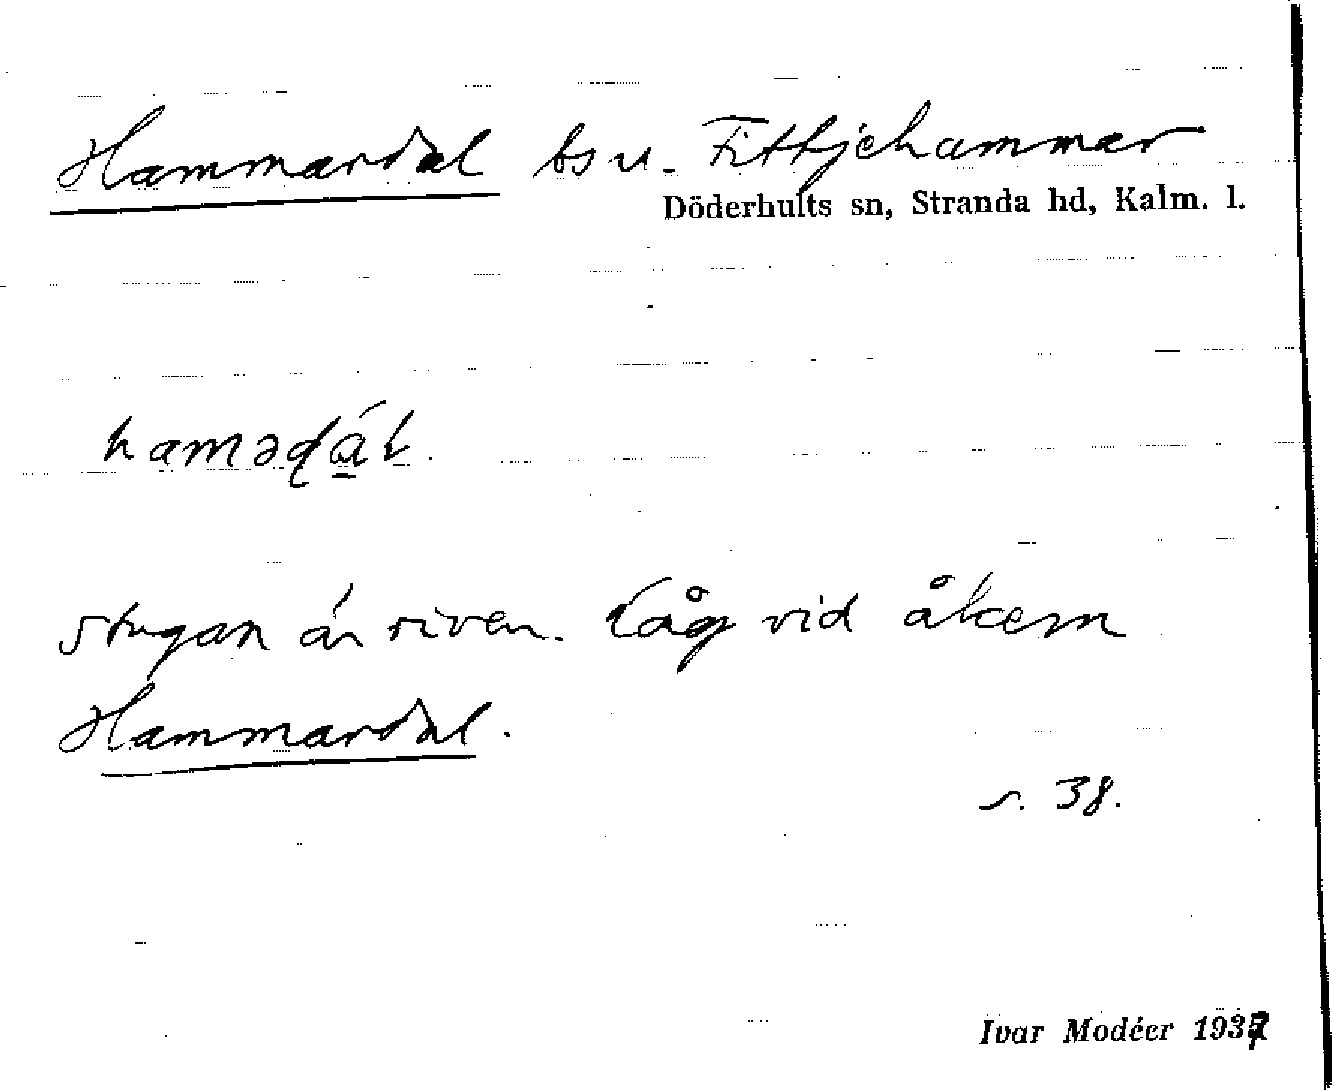 Hammardal bs u. Fittjehammar
Döderhults sn, Stranda hd, Kalm. l.
haməɖа̠́l.
Stugan är riven. Låg vid åkern
Hammardal.
s. 38.
Ivar Modéer 1937